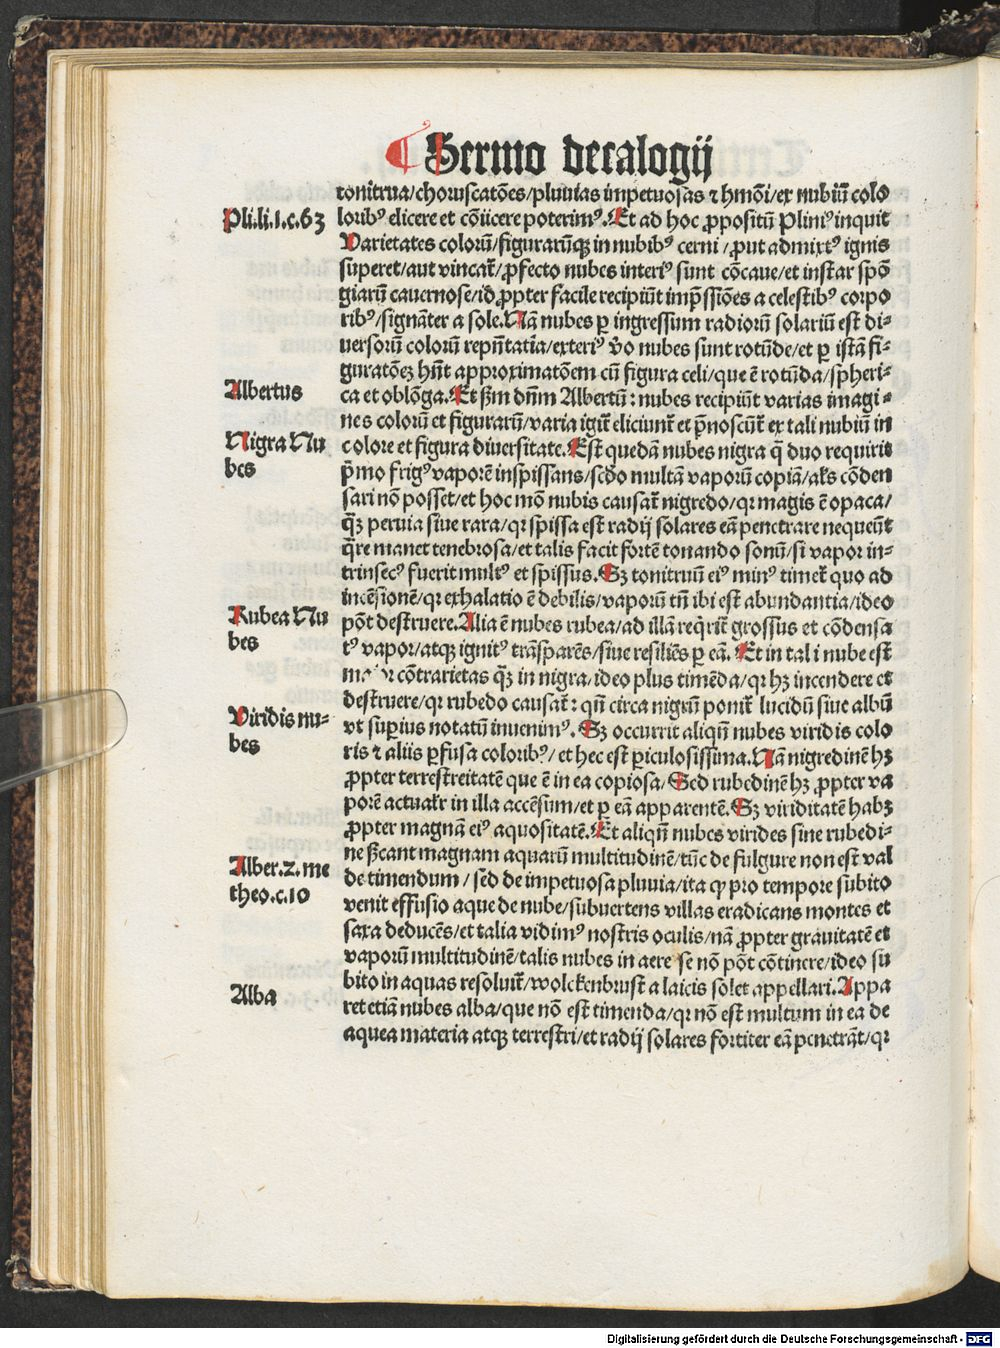 ¶ Sermo decalogij
tonitrua/choruscatōes/pluuias impetuosas ⁊ hmōi/ex nubiū colo
Pli.li.1.c.63
loribꝰ elicere et cōijcere poterimꝰ. Et ad hoc ꝓpositū Pliniꝰ inquit
Varietates colorū/figurarūqꝫ in nubibꝰ cerni/ꝓut admixtꝰ ignis
superet/aut vincat̄/ꝓfecto nubes interiꝰ sunt cōcaue/et instar spō
giarū cauernose/id ꝓpter facile recipiūt imp̄ssiōes a celestibꝰ corpo
ribꝰ/signāter a sole. Nā nubes ꝑ ingressum radiorū solariū est di⸗
uersorū colorū rep̄ntatia/exteriꝰ v̄o nubes sunt rotūde/et ꝑ istā fi⸗
guratōeꝫ hn̄t approximatōem cū figura celi/que ē rotūda/spheri⸗
Albertus
ca et oblōga. Et ẜm dn̄m Albertū: nubes recipiūt varias imagi⸗
nes colorū et figurarū/varia igit̄ eliciunt̄ et p̄noscūt̄ ex tali nubiū in
Nigra Nu
bes
colore et figura diuersitate. Est quedā nubes nigra q̄ duo requirit
p̄mo frigꝰ vaporē inspissans/scd̄o multā vaporū copiā/al̄s cōden
sari nō posset/et hoc mō nubis causat̄ nigredo/qꝛ magis ē opaca/
q̄ꝫ peruia siue rara/qꝛ spissa est radij solares eā penetrare nequeūt
q̄re manet tenebrosa/et talis facit fortē tonando sonū/si vapor in⸗
trinsecꝰ fuerit multꝰ et spissus. Sꝫ tonitruū eiꝰ minꝰ timet̄ quo ad
incēsionē/qꝛ exhalatio ē debilis/vaporū tn̄ ibi est abundantia/ideo
Rubea Nu
bes
pōt destruere. Alia ē nubes rubea/ad illā req̄rit̄ grossus et cōdensa
tꝰ vapor/atqꝫ ignitꝰ trāsparēs/siue resiliēs ꝑ eā. Et in tali nube est
maior cōtrarietas q̄ꝫ in nigra/ideo plus timēda/qꝛ hꝫ incendere et
destruere/qꝛ rubedo causat̄: qn̄ circa nigrū ponit̄ lucidū siue albū
Viridis nu⸗
bes
vt supꝰius notatū inuenimꝰ. Sꝫ occurrit aliqn̄ nubes viridis colo
ris ⁊ aliis ꝑfusa coloribꝰ/et hec est ꝑiculosissima. Nā nigredinē hꝫ
ꝓpter terrestreitatē que ē in ea copiosa/Sed rubedinē hꝫ ꝓpter va
porē actualr̄ in illa accēsum/et ꝑ eā apparentē. Sꝫ viriditatē habꝫ
ꝓpter magnā eiꝰ aquositatē. Et aliqn̄ nubes virides sine rubedi⸗
Alber.2.me
theo.c.10
ne ẜcant magnam aquarū multitudinē/tūc de fulgure non est val
de timendum/sed de impetuosa pluuia/ita ꝙ pro tempore subito
venit effusio aque de nube/subuertens villas eradicans montes et
saxa deducēs/et talia vidimꝰ nostris oculis/nā ꝓpter grauitatē et
vaporū multitudinē/talis nubes in aere se nō pōt cōtinere/ideo su
Alba
bito in aquas resoluit̄/wolckenbrust a laicis solet appellari. Appa
ret etiā nubes alba/que nō est timenda/qꝛ nō est multum in ea de
aquea materia atqꝫ terrestri/et radij solares fortiter eā penetrāt/qꝛ
Digitalisierung gefördert durch die Deutsche Forschungsgemeinschaft - DFG